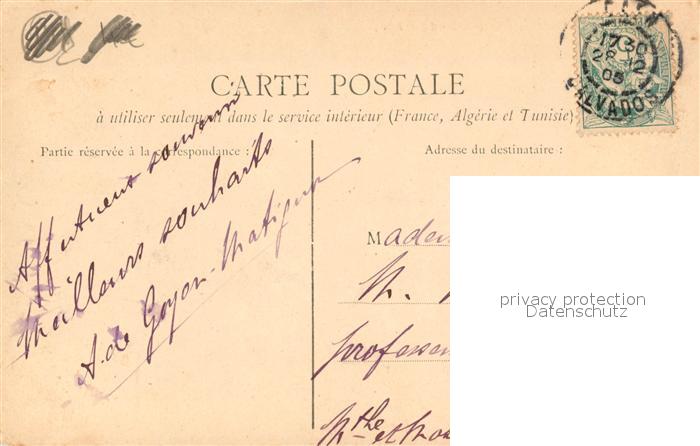 CARTE POSTALE
à utiliser seulement dans le service intérieur (France, Algérie et Tunisie)
Partie réservée à la correspondance :
Adresse du destinataire :
CAEN
17 30
28 12
05
CALVADOS
Affectueux souvenir
Meilleurs souhaits
A. de Goyon-Matignon
Madem
M.
professeu
privacy protection
Datenschutz